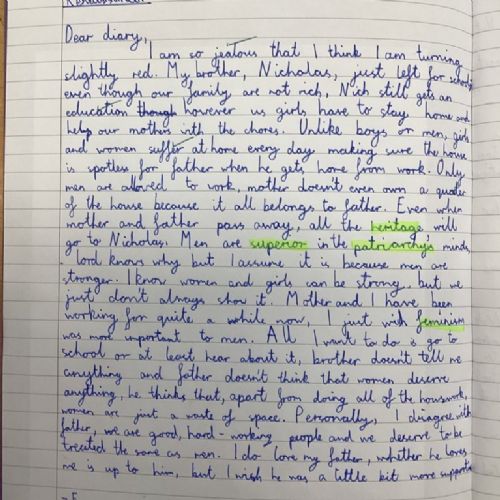 Dear diary,
I am so jealous that I think I am turning
slightly red. My brother, Nicholas, just left for school
even though our family are not rich, Nich still gets an
education though however us girls have to stay home and
help our mothers with the chores. Unlike boys or men, girls
and women suffer at home every day making sure the house
is spotless for father when he gets home from work. Only
men are allowed to work, mother doesn't even own a quater
of the house because it all belongs to father. Even when
mother and father pass away, all the heritage will
go to Nicholas. Men are superior in the patriarchy's minds,
lord knows why but I assume it is because men are
stronger. I know women and girls can be strong, but we
just don't always show it. Mother and I have been
working for quite a while now, I just wish feminism
was more important to men. All I want to do is go to
school or at least hear about it, brother doesn't tell me
anything and father doesn't think that women deserve
anything, he thinks that, apart from doing all of the housework,
women are just a waste of space. Personally, I disagree with
father, we are good, hard-working people and we deserve to be
treated the same as men. I do love my father, whither he loves
me is up to him, but I wish he was a little bit more supportive